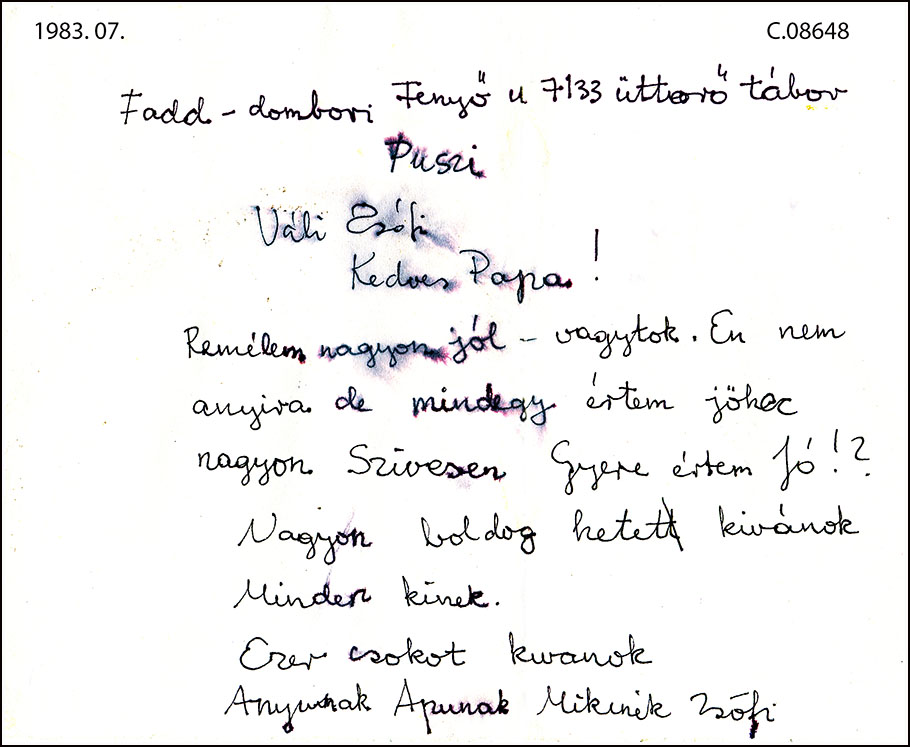 1983. 07.
C.08648
Fadd - dombori Fenyő u 7133 úttörő tábor
Puszi
Váli Zsófi
Kedves Papa!
Remélem nagyon jól - vagytok. En nem
anyira de mindegy értem jöhec
nagyon Szivesen Gyere értem Jó!?
Nagyon boldog hetett kivánok
Minden kinek.
Ezer csokot kivanok
Anyunak Apunak Mikinek Zsófi